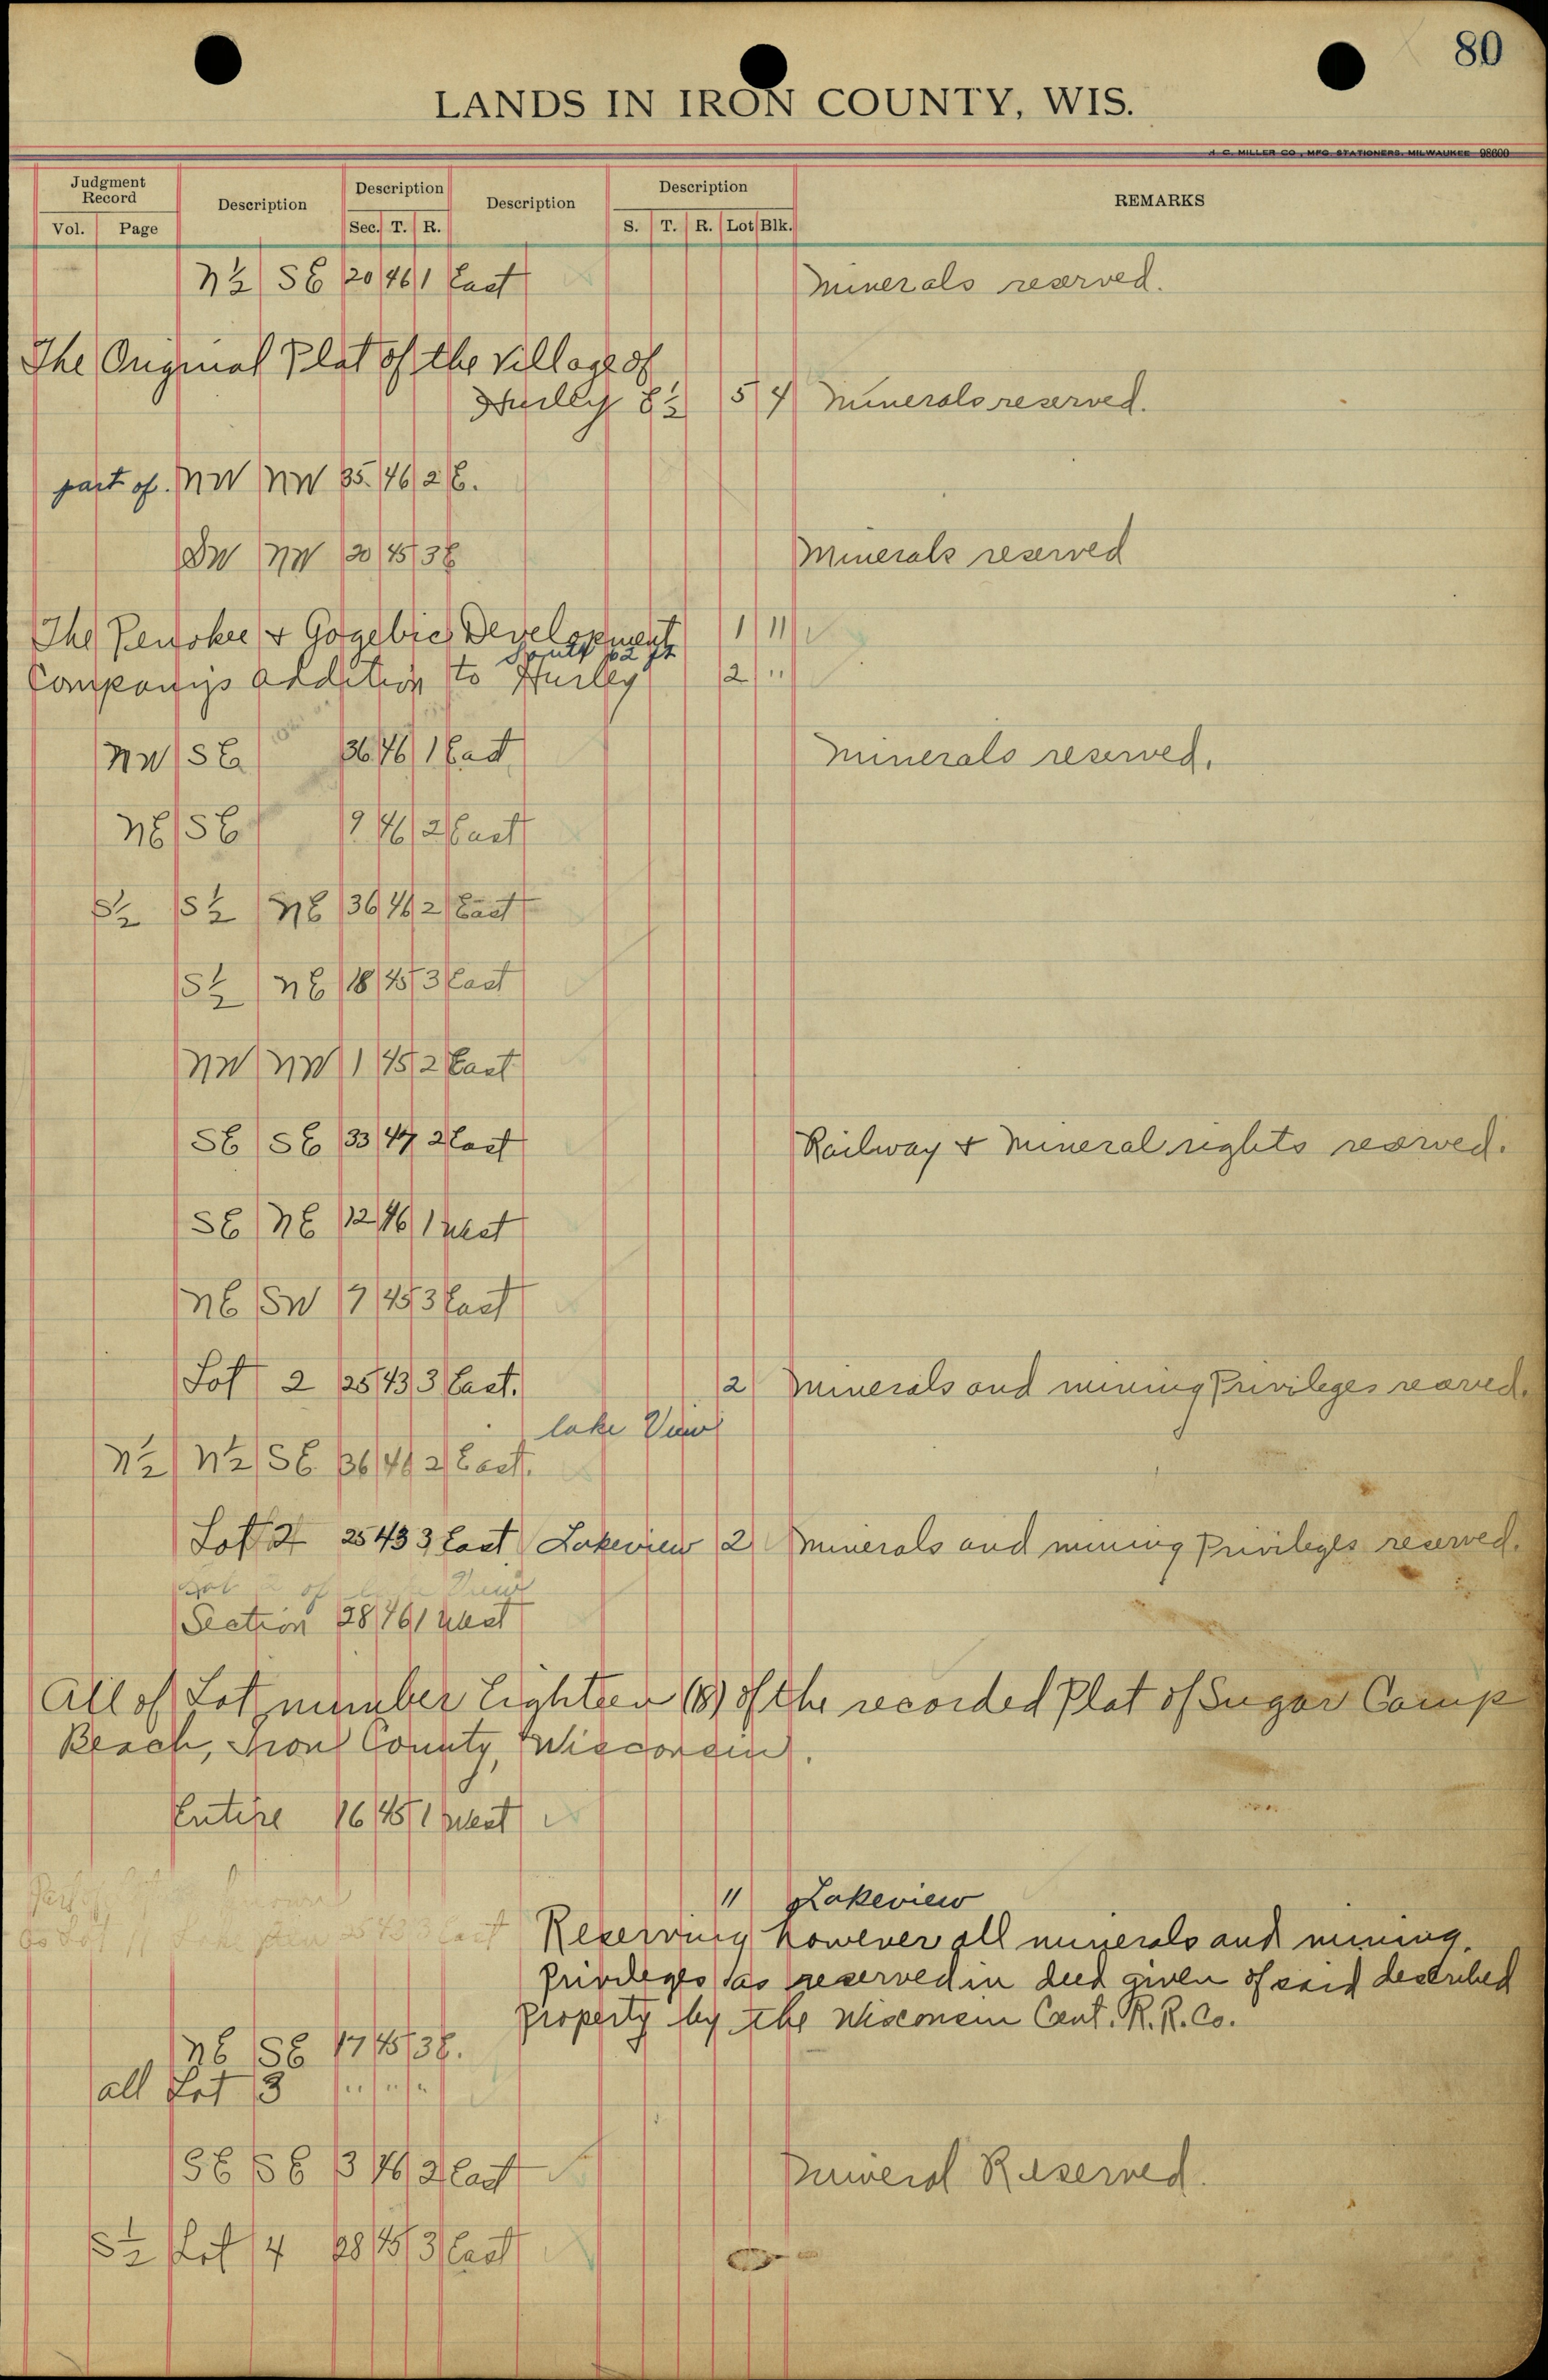 80
LANDS IN IRON COUNTY, WIS.
H. C. MILLER CO., MFG. STATIONERS, MILWAUKEE 98600
Judgment Record Description Description Description Description REMARKS
Vol. Page Sec. T. R. S. T. R. Lot Blk.
N½ SE 20 46 1 East Minerals reserved.
The Original Plat of the Village of
Hurley E½ 5 4 Minerals reserved.
part of. NW NW 35. 46 2 E.
SW NW 20 45 3E Minerals reserved
The Penokee & Gogebic Development 1 11
South 62 ft
Company's Addition to Hurley 2 "
NW SE 36 46 1 East Minerals reserved.
NE SE 9 46 2 East
S½ S½ NE 36 46 2 East
S½ NE 18 45 3 East
NW NW 1 45 2 East
SE SE 33 47 2 East Railway & Mineral rights reserved.
SE NE 12 46 1 West
NE SW 7 45 3 East
Lot 2 25 43 3 East. 2 Minerals and mining Privileges reserved.
Lake View
N½ N½ SE 36 46 2 East.
Lot 2 25 43 3 East Lakeview 2 Minerals and mining Privileges reserved.
Lot 2 of Lake View
Section 28 46 1 West
All of Lot number Eighteen (18) of the recorded Plat of Sugar Camp
Beach, Iron County, Wisconsin.
Entire 16 45 1 West
11 Lakeview
25 43 3 East Reserving however all minerals and mining
Privileges as reserved in deed given of said described
property by the Wisconsin Cent. R. R. Co.
NE SE 17 45 3E.
all Lot 3 " " "
SE SE 3 46 2 East Mineral Reserved.
S½ Lot 4 28 45 3 East